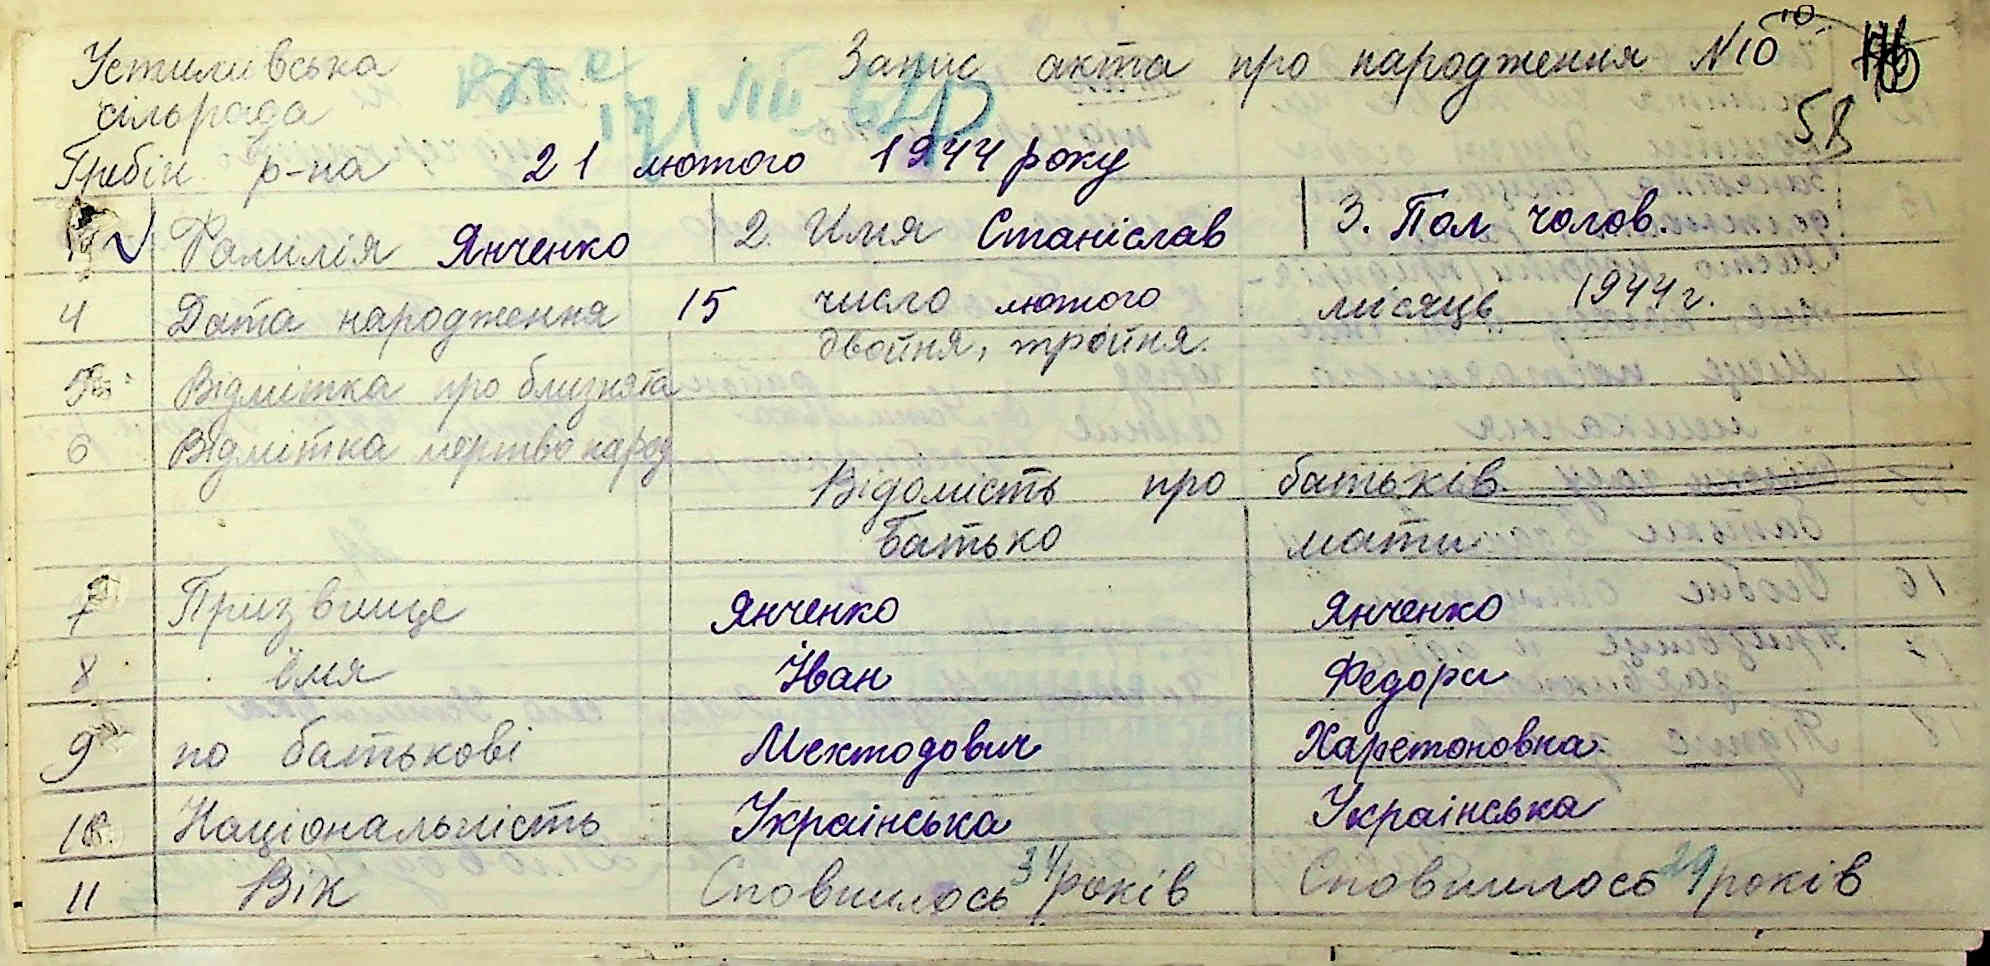 Устимівська Запис акта про народження N 10
сільрада
58
Гребін р-на 21 лютого 1944 року
Фамилія Янченко 2. Имя Станіслав 3. Пол чолов.
4 Дата народження 15 число лютого місяць 1944 г.
двойня, тройня.
5 Відмітка про близнята
6 Відмітка мертво народ
Відомість про батьків
батько мати
7 Призвище Янченко Янченко
8 імя Іван Федора
9 по батькові Мектодович Харетоновна
10 Національність Українська Українська
11 Вік Сповнилось 34 років Сповнилось 29 років